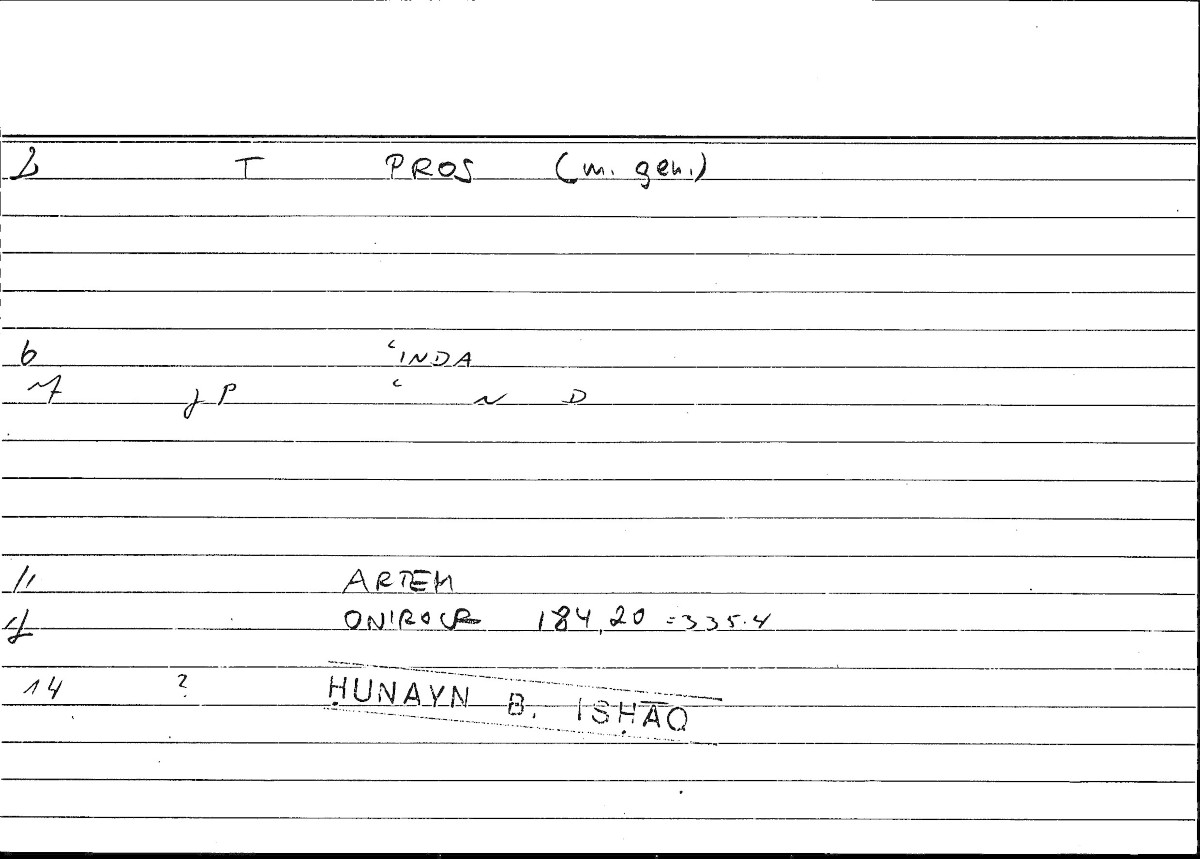 T PROS (m. gen.)
6 ʿINDA
P ʿ N D
ARTEM
ONIROCR 184,20 = 335.4
14 ? ḤUNAYN B. ISḤĀQ